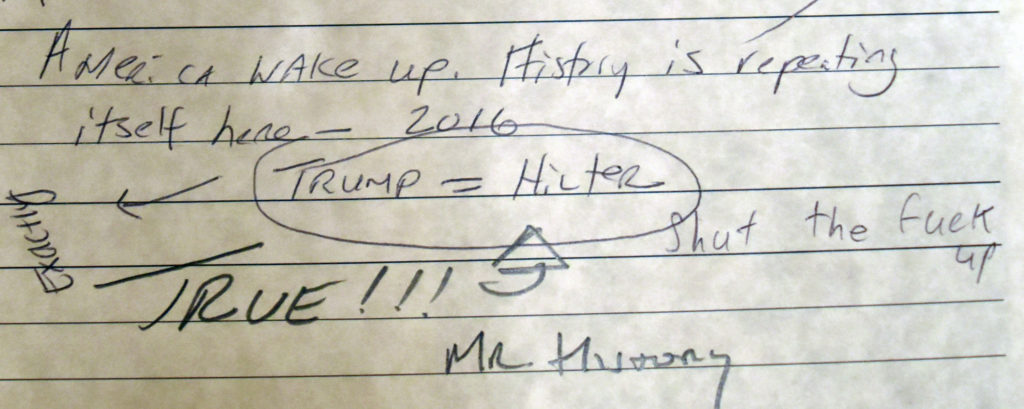 AMERICA WAKE up. History is repeating
itself here - 2016
TRUMP = HilTER
Exactly
Shut the fuck
up
TRUE!!!
MR.